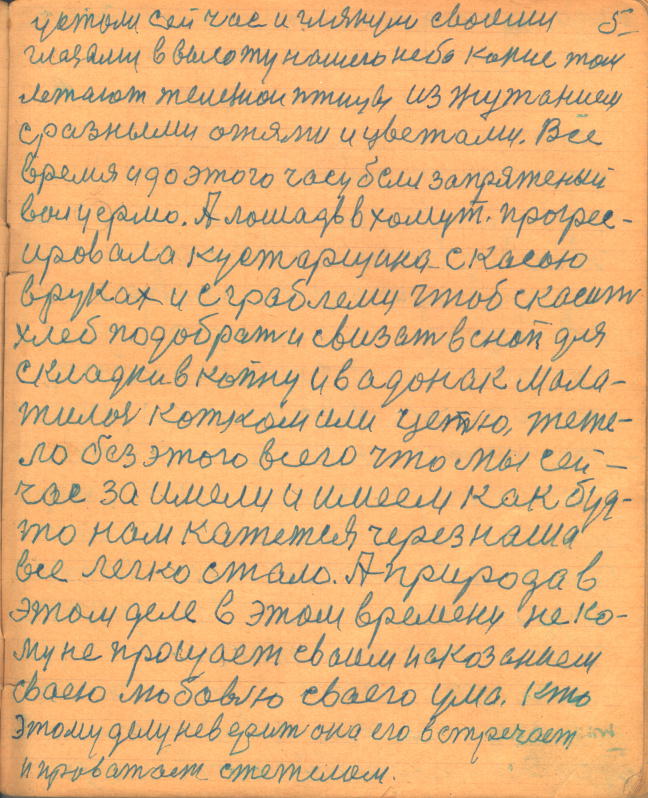 устали сей час и глянули своими 5
глазами в высоту нашего неба
летают железнои птицы из жужанием
с разными огями и цветами. Все
время и до этого часу бели запряженый
вол у ермо. А лошадь в хомут. прогрес-
ировала кустарщина с касою
в руках и с граблеми чтоб скасит
хлеб подобрат и свизат в сноп для
складки в копну и в адонак мала-
тилос катком или цепю, теже-
ло без этого всего что мы сей-
час за имели и имеем как буд-
то нам кажется через наша
все легко стало. А природа в
этом деле в этом времени не ко-
му не прощает своим наказанием
сваею любовлю сваего ума. Кто
этому делу не верит она его встречает
и проважает стежелом.